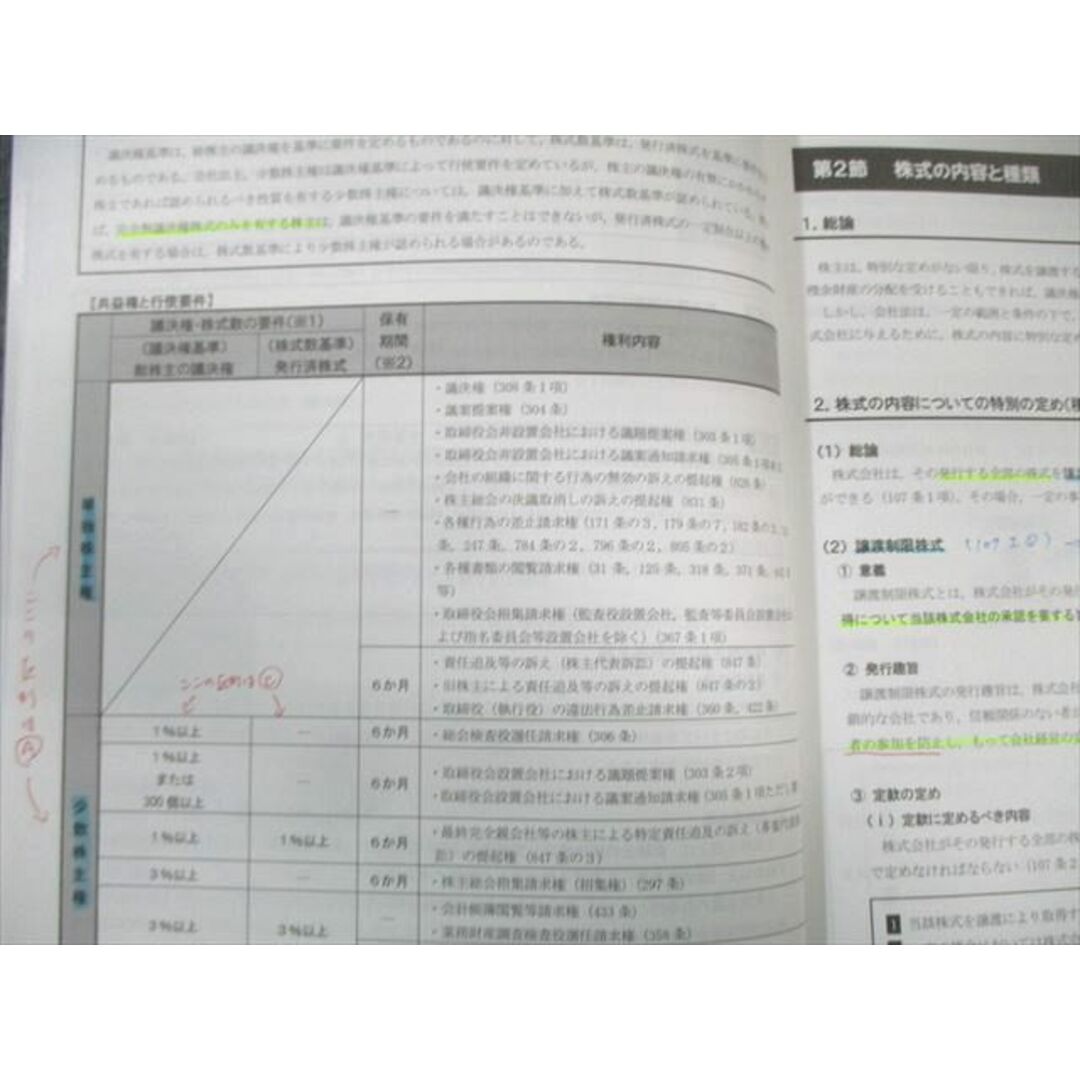 議決権基準は、総株主の議決権を基準に要件を定めるものであるのに対して、株式数基準は、発行済株式を基準に
めるものである。会社法上、少数株主権は議決権基準によって行使要件を定めているが、株主の議決権の有無にかかわらず
株主であれば認められるべき性質を有する少数株主権については、議決権基準に加えて株式数基準が認められている。
ば、完全無議決権株式のみを有する株主は、議決権基準の要件を満たすことはできないが、発行済株式の一定割合以上の
株式を有する場合は、株式数基準により少数株主権が認められる場合があるのである。
【共益権と行使要件】
議決権・株式数の要件(※1)
(議決権基準)
総株主の議決権
(株式数基準)
発行済株式
保有
期間
(※2)
権利内容
単独株主権
・議決権(308条1項)
・議案提案権(304条)
・取締役会非設置会社における議題提案権(303条1項)
・取締役会非設置会社における議案通知請求権(305条1項
・会社の組織に関する行為の無効の訴えの提起権(828条)
・株主総会の決議取消しの訴えの提起権(831条)
・各種行為の差止請求権(171条の3、179条の7、182条の3、
条、247条、784条の2、796条の2、805条の2)
・各種書類の閲覧請求権(31条、125条、318条、371条、
等)
・取締役会招集請求権(監査役設置会社、監査等委員会設置会社
よび指名委員会等設置会社を除く)(367条1項)
—
6か月
・責任追及等の訴え(株主代表訴訟)の提起権(847条)
・旧株主による責任追及等の訴えの提起権(847条の2)
・取締役(執行役)の違法行為差止請求権(360条、422条)
ここの区別は Ⓒ
ここの区別は Ⓐ
少数株主権
1%以上
—
6か月
・総会検査役選任請求権(306条)
1%以上
または
300個以上
—
6か月
・取締役会設置会社における議題提案権(303条2項)
・取締役会設置会社における議案通知請求権(305条1項ただし書
1%以上
1%以上
6か月
・最終完全親会社等の株主による特定責任追及の訴え(多重代表訴
訟)の提起権(847条の3)
3%以上
—
6か月
・株主総会招集請求権(招集権)(297条)
3%以上
3%以上
—
・会計帳簿閲覧等請求権(433条)
・業務財産調査検査役選任請求権(358条)
第2節 株式の内容と種類
1. 総論
株主は、特別な定めがない限り、株式を譲渡する
残余財産の分配を受けることもできれば、議決権
しかし、会社法は、一定の範囲と条件の下で、
式会社に与えるために、株式の内容に特別な定め
2. 株式の内容についての特別の定め(種
(1) 総論
株式会社は、その発行する全部の株式を譲
ができる(107条1項)。その場合、一定の事
(2) 譲渡制限株式 (107 I ①)
① 意義
譲渡制限株式とは、株式会社がその発行
得について当該株式会社の承認を要する
② 発行趣旨
譲渡制限株式の発行趣旨は、株式会社
鎖的な会社であり、信頼関係のない者
者の参加を防止し、もって会社経営の
③ 定款の定め
(i) 定款に定めるべき内容
株式会社がその発行する全部の株
で定めなければならない(107条2
1 当該株式を譲渡により取得す